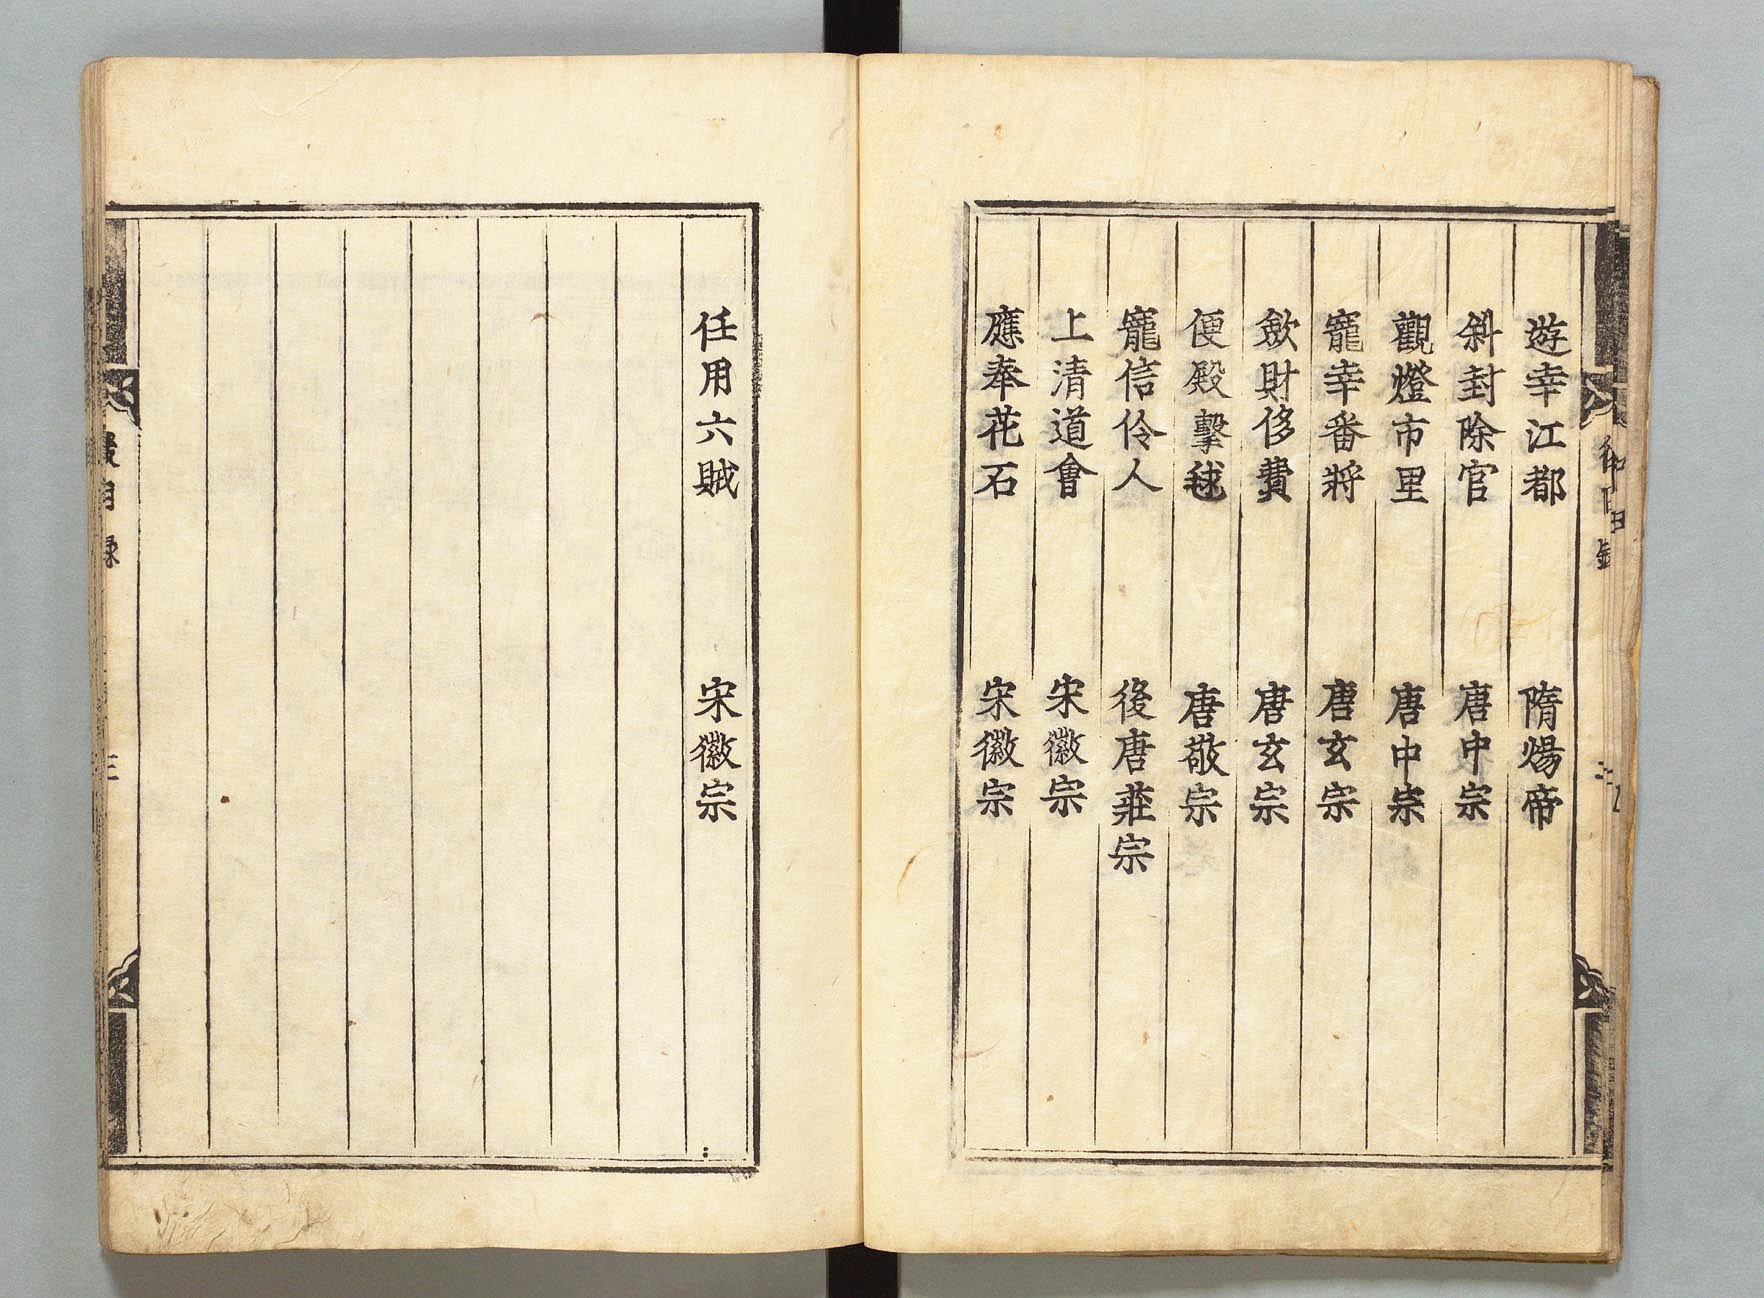 遊幸江都 隋煬帝
斜封除官 唐中宗
觀燈市里 唐中宗
寵幸番將 唐玄宗
斂財侈費 唐玄宗
便殿擊毬 唐敬宗
寵信伶人 後唐莊宗
上清道會 宋徽宗
應奉花石 宋徽宗
任用六賊 宋徽宗
目錄 三